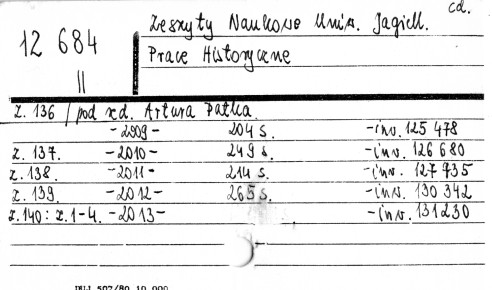 cd.
Zeszyty Naukowe Uniw. Jagiell.
12 684
Prace Historyczne
II
z. 136 / pod red. Artura Patka.
-2009- 204 s. -inv. 125 478
z. 137. -2010- 249 s. -inv. 126 680
z. 138. -2011- 214 s. -inv. 127 935
z. 139. -2012- 265 s. -inv. 130 342
z. 140: z. 1-4. -2013- -inv. 131230